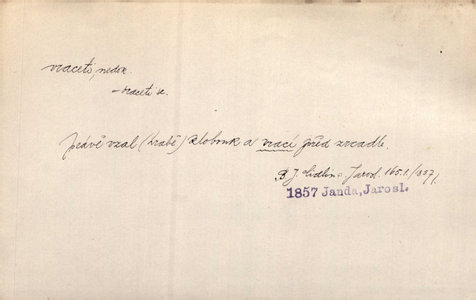 vraceti, nedok.
– vraceti se.
právě vzal (hrabě) klobouk a vrací před zrcadle.
B. J. Cidlin. Jarosl. 165.1./1857/.
1857 Janda, Jarosl.